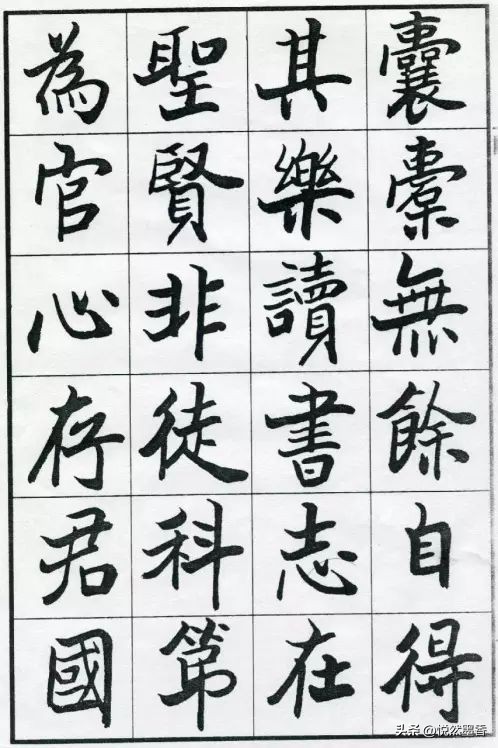 囊橐無餘自得
其樂讀書志在
聖賢非徒科第
為官心存君國
头条@悦然墨香